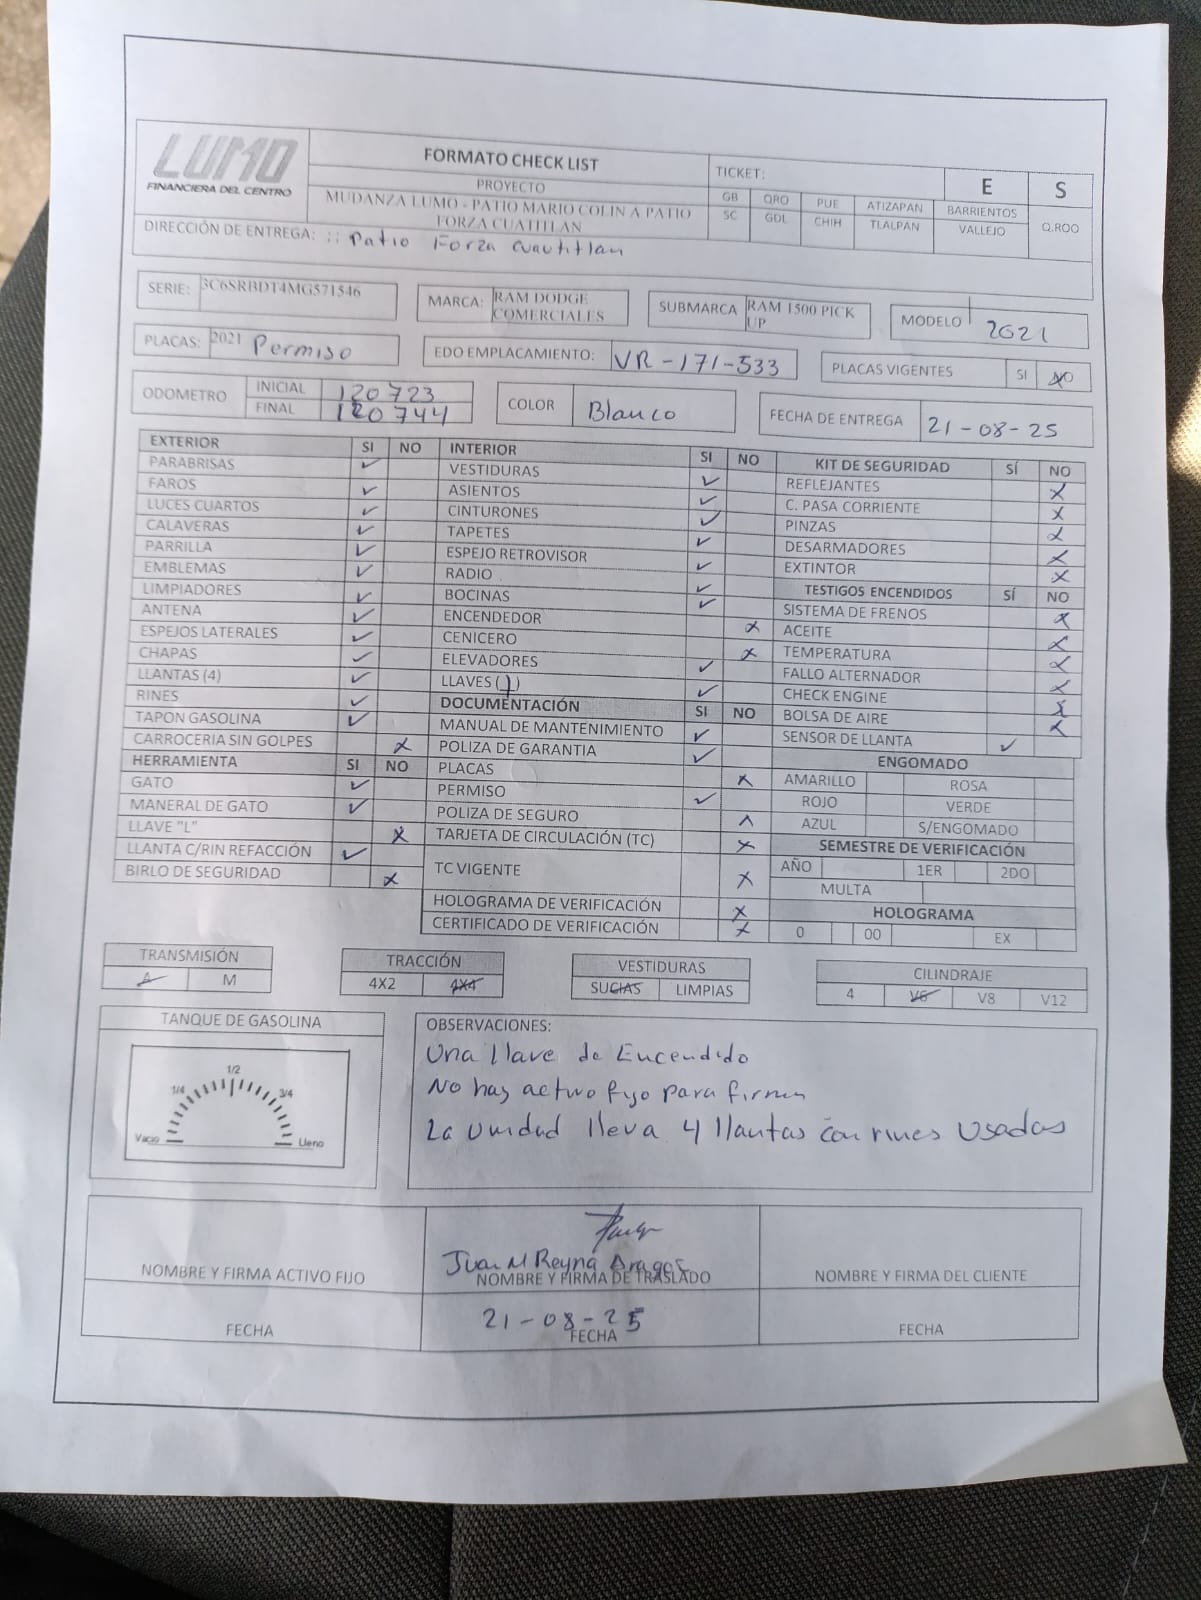 LUMO
FINANCIERA DEL CENTRO
FORMATO CHECK LIST
PROYECTO
MUDANZA LUMO - PATIO MARIO COLIN A PATIO
FORZA CUATITLAN
TICKET:
E S
GB QRO PUE ATIZAPAN BARRIENTOS Q.ROO
SC GDL CHIH TLALPAN VALLEJO
DIRECCIÓN DE ENTREGA: :: Patio Forza Cuautitlan
SERIE: 3C6SRBDT4MG571546
MARCA: RAM DODGE
COMERCIALES
SUBMARCA RAM 1500 PICK
UP
MODELO 2021
PLACAS: 2021 Permiso
EDO EMPLACAMIENTO: VR-171-533
PLACAS VIGENTES SI NO
ODOMETRO
INICIAL 120723
FINAL 120744
COLOR Blanco
FECHA DE ENTREGA 21-08-25
EXTERIOR SI NO
PARABRISAS ✓
FAROS ✓
LUCES CUARTOS ✓
CALAVERAS ✓
PARRILLA ✓
EMBLEMAS ✓
LIMPIADORES ✓
ANTENA ✓
ESPEJOS LATERALES ✓
CHAPAS ✓
LLANTAS (4) ✓
RINES ✓
TAPON GASOLINA ✓
CARROCERIA SIN GOLPES x
HERRAMIENTA SI NO
GATO ✓
MANERAL DE GATO ✓
LLAVE "L" x
LLANTA C/RIN REFACCIÓN ✓
BIRLO DE SEGURIDAD x
INTERIOR SI NO
VESTIDURAS ✓
ASIENTOS ✓
CINTURONES ✓
TAPETES ✓
ESPEJO RETROVISOR ✓
RADIO ✓
BOCINAS ✓
ENCENDEDOR x
CENICERO x
ELEVADORES ✓
LLAVES (1) ✓
DOCUMENTACIÓN SI NO
MANUAL DE MANTENIMIENTO ✓
POLIZA DE GARANTIA ✓
PLACAS x
PERMISO ✓
POLIZA DE SEGURO x
TARJETA DE CIRCULACIÓN (TC) x
TC VIGENTE x
HOLOGRAMA DE VERIFICACIÓN x
CERTIFICADO DE VERIFICACIÓN x
KIT DE SEGURIDAD SÍ NO
REFLEJANTES x
C. PASA CORRIENTE x
PINZAS x
DESARMADORES x
EXTINTOR x
TESTIGOS ENCENDIDOS SÍ NO
SISTEMA DE FRENOS x
ACEITE x
TEMPERATURA x
FALLO ALTERNADOR x
CHECK ENGINE x
BOLSA DE AIRE x
SENSOR DE LLANTA ✓
ENGOMADO
AMARILLO ROSA
ROJO VERDE
AZUL S/ENGOMADO
SEMESTRE DE VERIFICACIÓN
AÑO 1ER 2DO
MULTA
HOLOGRAMA
0 00 EX
TRANSMISIÓN
A M
TRACCIÓN
4X2 4X4
VESTIDURAS
SUCIAS LIMPIAS
CILINDRAJE
4 V6 V8 V12
TANQUE DE GASOLINA
Vacio 1/4 1/2 3/4 Lleno
OBSERVACIONES:
Una llave de Encendido
No hay activo fijo para firmar
La unidad lleva 4 llantas con rines usadas
NOMBRE Y FIRMA ACTIVO FIJO
Juan M Reyna
NOMBRE Y FIRMA DE TRASLADO
NOMBRE Y FIRMA DEL CLIENTE
FECHA
21-08-25
FECHA
FECHA